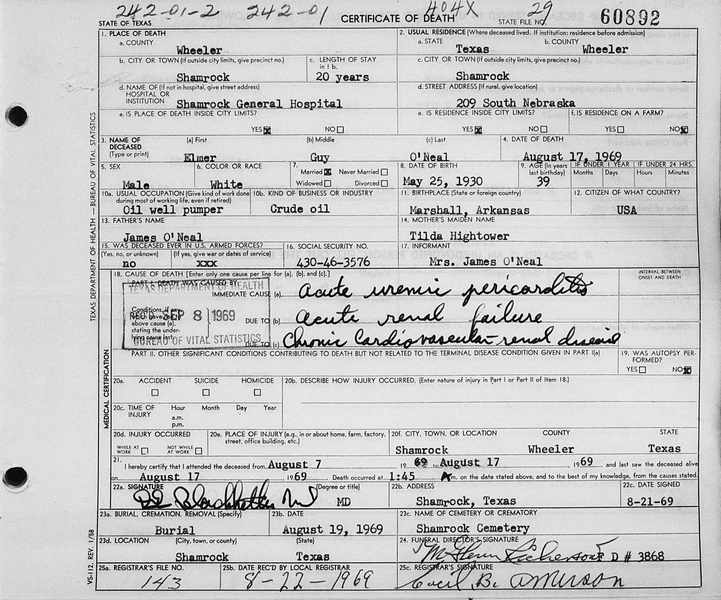 242-01-2 242-01 404X 29
STATE OF TEXAS CERTIFICATE OF DEATH STATE FILE NO. 60892
1. PLACE OF DEATH 2. USUAL RESIDENCE (Where deceased lived. If institution: residence before admission)
a. COUNTY a. STATE b. COUNTY
Wheeler Texas Wheeler
b. CITY OR TOWN (If outside city limits, give precinct no.) c. LENGTH OF STAY in 1 b. c. CITY OR TOWN (If outside city limits, give precinct no.)
Shamrock 20 years Shamrock
d. NAME OF (If not in hospital, give street address) HOSPITAL OR INSTITUTION d. STREET ADDRESS (If rural, give location)
Shamrock General Hospital 209 South Nebraska
e. IS PLACE OF DEATH INSIDE CITY LIMITS? e. IS RESIDENCE INSIDE CITY LIMITS? f. IS RESIDENCE ON A FARM?
YES NO YES NO YES NO
3. NAME OF DECEASED (Type or print) (a) First (b) Middle (c) Last 4. DATE OF DEATH
Elmer Guy O'Neal August 17, 1969
5. SEX 6. COLOR OR RACE 7. Married Never Married Widowed Divorced 8. DATE OF BIRTH 9. AGE (In years last birthday) IF UNDER 1 YEAR Months Days IF UNDER 24 HRS. Hours Minutes
Male White May 25, 1930 39
10a. USUAL OCCUPATION (Give kind of work done during most of working life, even if retired) 10b. KIND OF BUSINESS OR INDUSTRY 11. BIRTHPLACE (State or foreign country) 12. CITIZEN OF WHAT COUNTRY?
Oil well pumper Crude oil Marshall, Arkansas USA
13. FATHER'S NAME 14. MOTHER'S MAIDEN NAME
James O'Neal Tilda Hightower
15. WAS DECEASED EVER IN U.S. ARMED FORCES? (If yes, give war or dates of service) 16. SOCIAL SECURITY NO. 17. INFORMANT
no xxx 430-46-3576 Mrs. James O'Neal
18. CAUSE OF DEATH [Enter only one cause per line for (a), (b), and (c).] INTERVAL BETWEEN ONSET AND DEATH
PART I. DEATH WAS CAUSED BY:
TEXAS DEPARTMENT OF HEALTH
IMMEDIATE CAUSE (a) Acute uremic pericarditis
REC'D SEP 8 1969
DUE TO (b) Acute renal failure
BUREAU OF VITAL STATISTICS
DUE TO (c) Chronic Cardiovascular renal disease
PART II. OTHER SIGNIFICANT CONDITIONS CONTRIBUTING TO DEATH BUT NOT RELATED TO THE TERMINAL DISEASE CONDITION GIVEN IN PART I(a) 19. WAS AUTOPSY PERFORMED?
YES NO
20a. ACCIDENT SUICIDE HOMICIDE 20b. DESCRIBE HOW INJURY OCCURRED. (Enter nature of injury in Part I or Part II of Item 18.)
20c. TIME OF INJURY Hour Month Day Year
a.m.
p.m.
20d. INJURY OCCURRED WHILE AT WORK NOT WHILE AT WORK 20e. PLACE OF INJURY (e.g., in or about home, farm, factory, street, office building, etc.) 20f. CITY, TOWN, OR LOCATION COUNTY STATE
Shamrock Wheeler Texas
21. I hereby certify that I attended the deceased from August 7 1969 August 17 1969 and last saw the deceased alive
on August 17 1969 Death occurred at 1:45 m. on the date stated above; and to the best of my knowledge, from the causes stated.
22a. SIGNATURE (Degree or title) 22b. ADDRESS 22c. DATE SIGNED
MD Shamrock, Texas 8-21-69
23a. BURIAL, CREMATION, REMOVAL (Specify) 23b. DATE 23c. NAME OF CEMETERY OR CREMATORY
Burial August 19, 1969 Shamrock Cemetery
23d. LOCATION (City, town, or county) (State) 24. FUNERAL DIRECTOR'S SIGNATURE
Shamrock Texas F D # 3868
25a. REGISTRAR'S FILE NO. 25b. DATE REC'D BY LOCAL REGISTRAR 25c. REGISTRAR'S SIGNATURE
143 8-22-1969 Cecil B.
TEXAS DEPARTMENT OF HEALTH — BUREAU OF VITAL STATISTICS
MEDICAL CERTIFICATION
VS-112, REV. 1/58